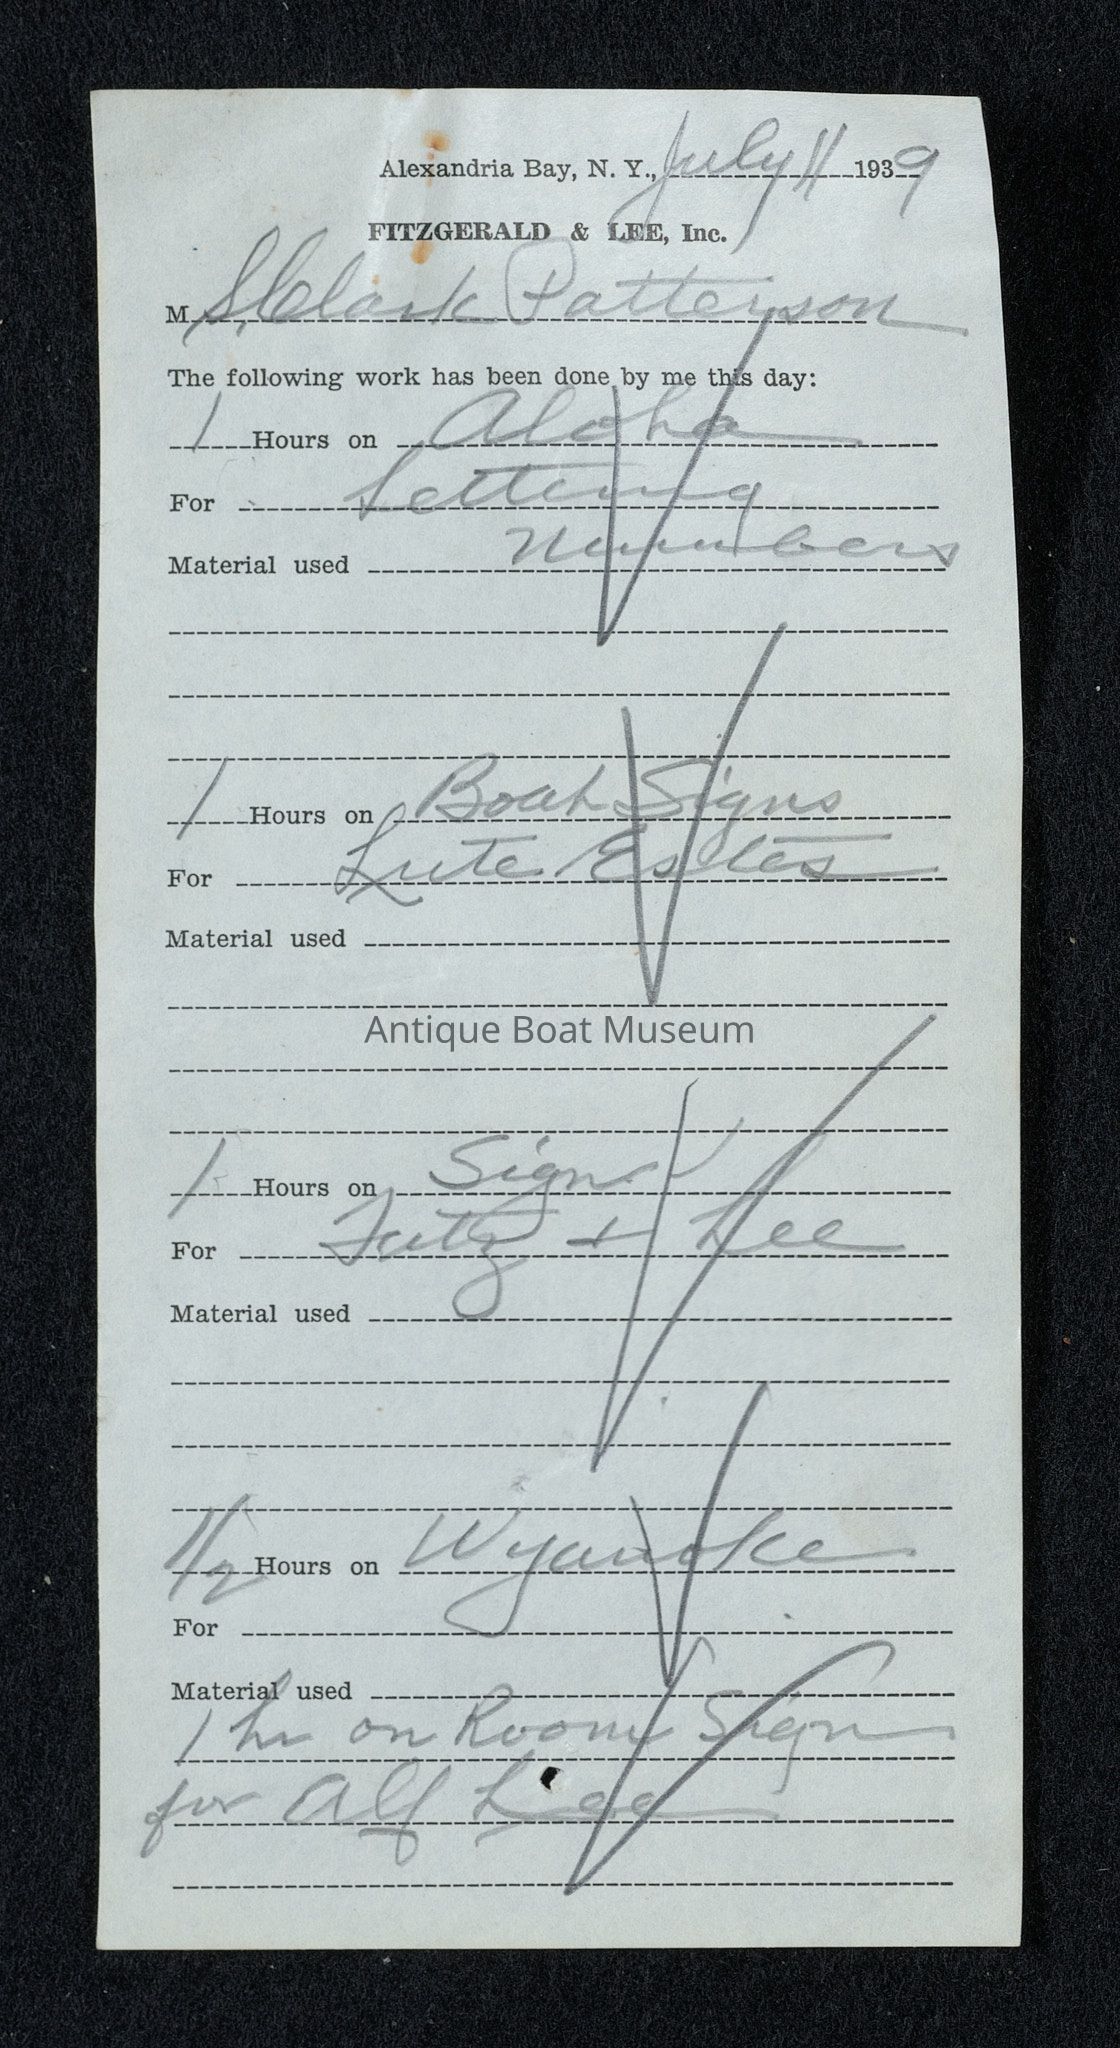 Alexandria Bay, N. Y., July 11 1939
FITZGERALD & LEE, Inc.
M S. Clark Patterson
The following work has been done by me this day:
1 Hours on Aloha
For Lettering
Material used Numbers
1 Hours on Boat Signs
For Lute Estes
Material used
Antique Boat Museum
1 Hours on Sign
For Fitz + Lee
Material used
1/2 Hours on Wyanoke
For
Material used
1 hr on Room Sign
for Alf Lee